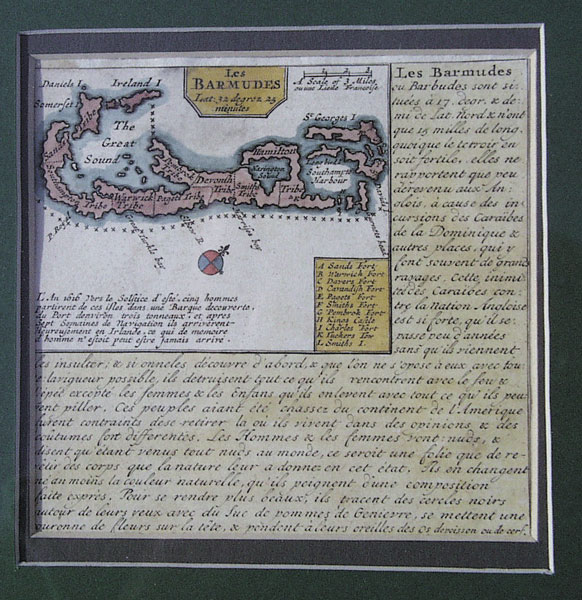 Les
BARMUDES
Lat. 32 degrez 25
minutes
A Scale of 3 Miles
ou une Lieüe Françoise
Daniels I
Ireland I
Somerset I
The
Great
Sound
Sands
Southampton
Tribe
Warwick
Tribe
Pagets
Tribe
Pembrok
Devonsh
Tribe
Smiths
Tribe
Hamilton
Tribe
Harington
Sound
St Georges I
Southampton
Harbour
Davids I
L'An 1616 vers le Solstice d'esté, cinq hommes
partirent de ces isles dans une Barque decouverte
du Port d'environ trois tonneaux, et apres
Sept Semaines de Navigation ils arriverent
heureusement en Irlande, ce qui de memoire
d'homme n'estoit peut estre jamais arrivé.
A Sands Fort
B Warwick Fort
C Davers Fort
D Cavendish Fort
E Pagets Fort
F Smiths Fort
G Pembrok Fort
H Kings Castle
I Charles Fort
K Tuckers For
L Smiths I.
Les Barmudes
ou Barbudes sont si-
tuées à 17. degr. & de-
mi de Lat. Nord & n'ont
que 15 milles de long,
quoique le terroir en
soit fertile, elles ne
rapportent que peu
de revenu aux An-
glois, à cause des in-
cursions des Caraibes
de la Dominique &
autres places, qui y
font souvent de grands
ravages. Cette inimi-
tié des Caraibes con-
tre la Nation Angloise
est si forte, qu'il se
passe peu d'années
sans qu'ils viennent
les insulter; & si on ne les découvre d'abord, & que l'on ne s'opose à eux avec tou-
te la vigueur possible, ils detruisent tout ce qu'ils rencontrent avec le feu &
l'epée excepté les femmes & les Enfans qu'ils enlevent avec tout ce qu'ils peu-
vent piller. Ces peuples aiant été chassez du continent de l'Amérique
furent contraints de se retirer la ou ils vivent dans des opinions & des
coûtumes fort differentes. Les Hommes & les femmes vont nuds, &
disent qu'étant venus tout nuds au monde, ce seroit une folie que de re-
vetir des corps que la nature leur a donnez en cet état. Ils en changent
ne au moins la couleur naturelle, qu'ils peignent d'une composition
faite exprès. Pour se rendre plus beaux, ils tracent des cercles noirs
autour de leurs yeux avec du Suc de pommes de Genievre, se mettent une
couronne de fleurs sur la tête, & pendent à leurs oreilles des Os de poisson ou de cerf.